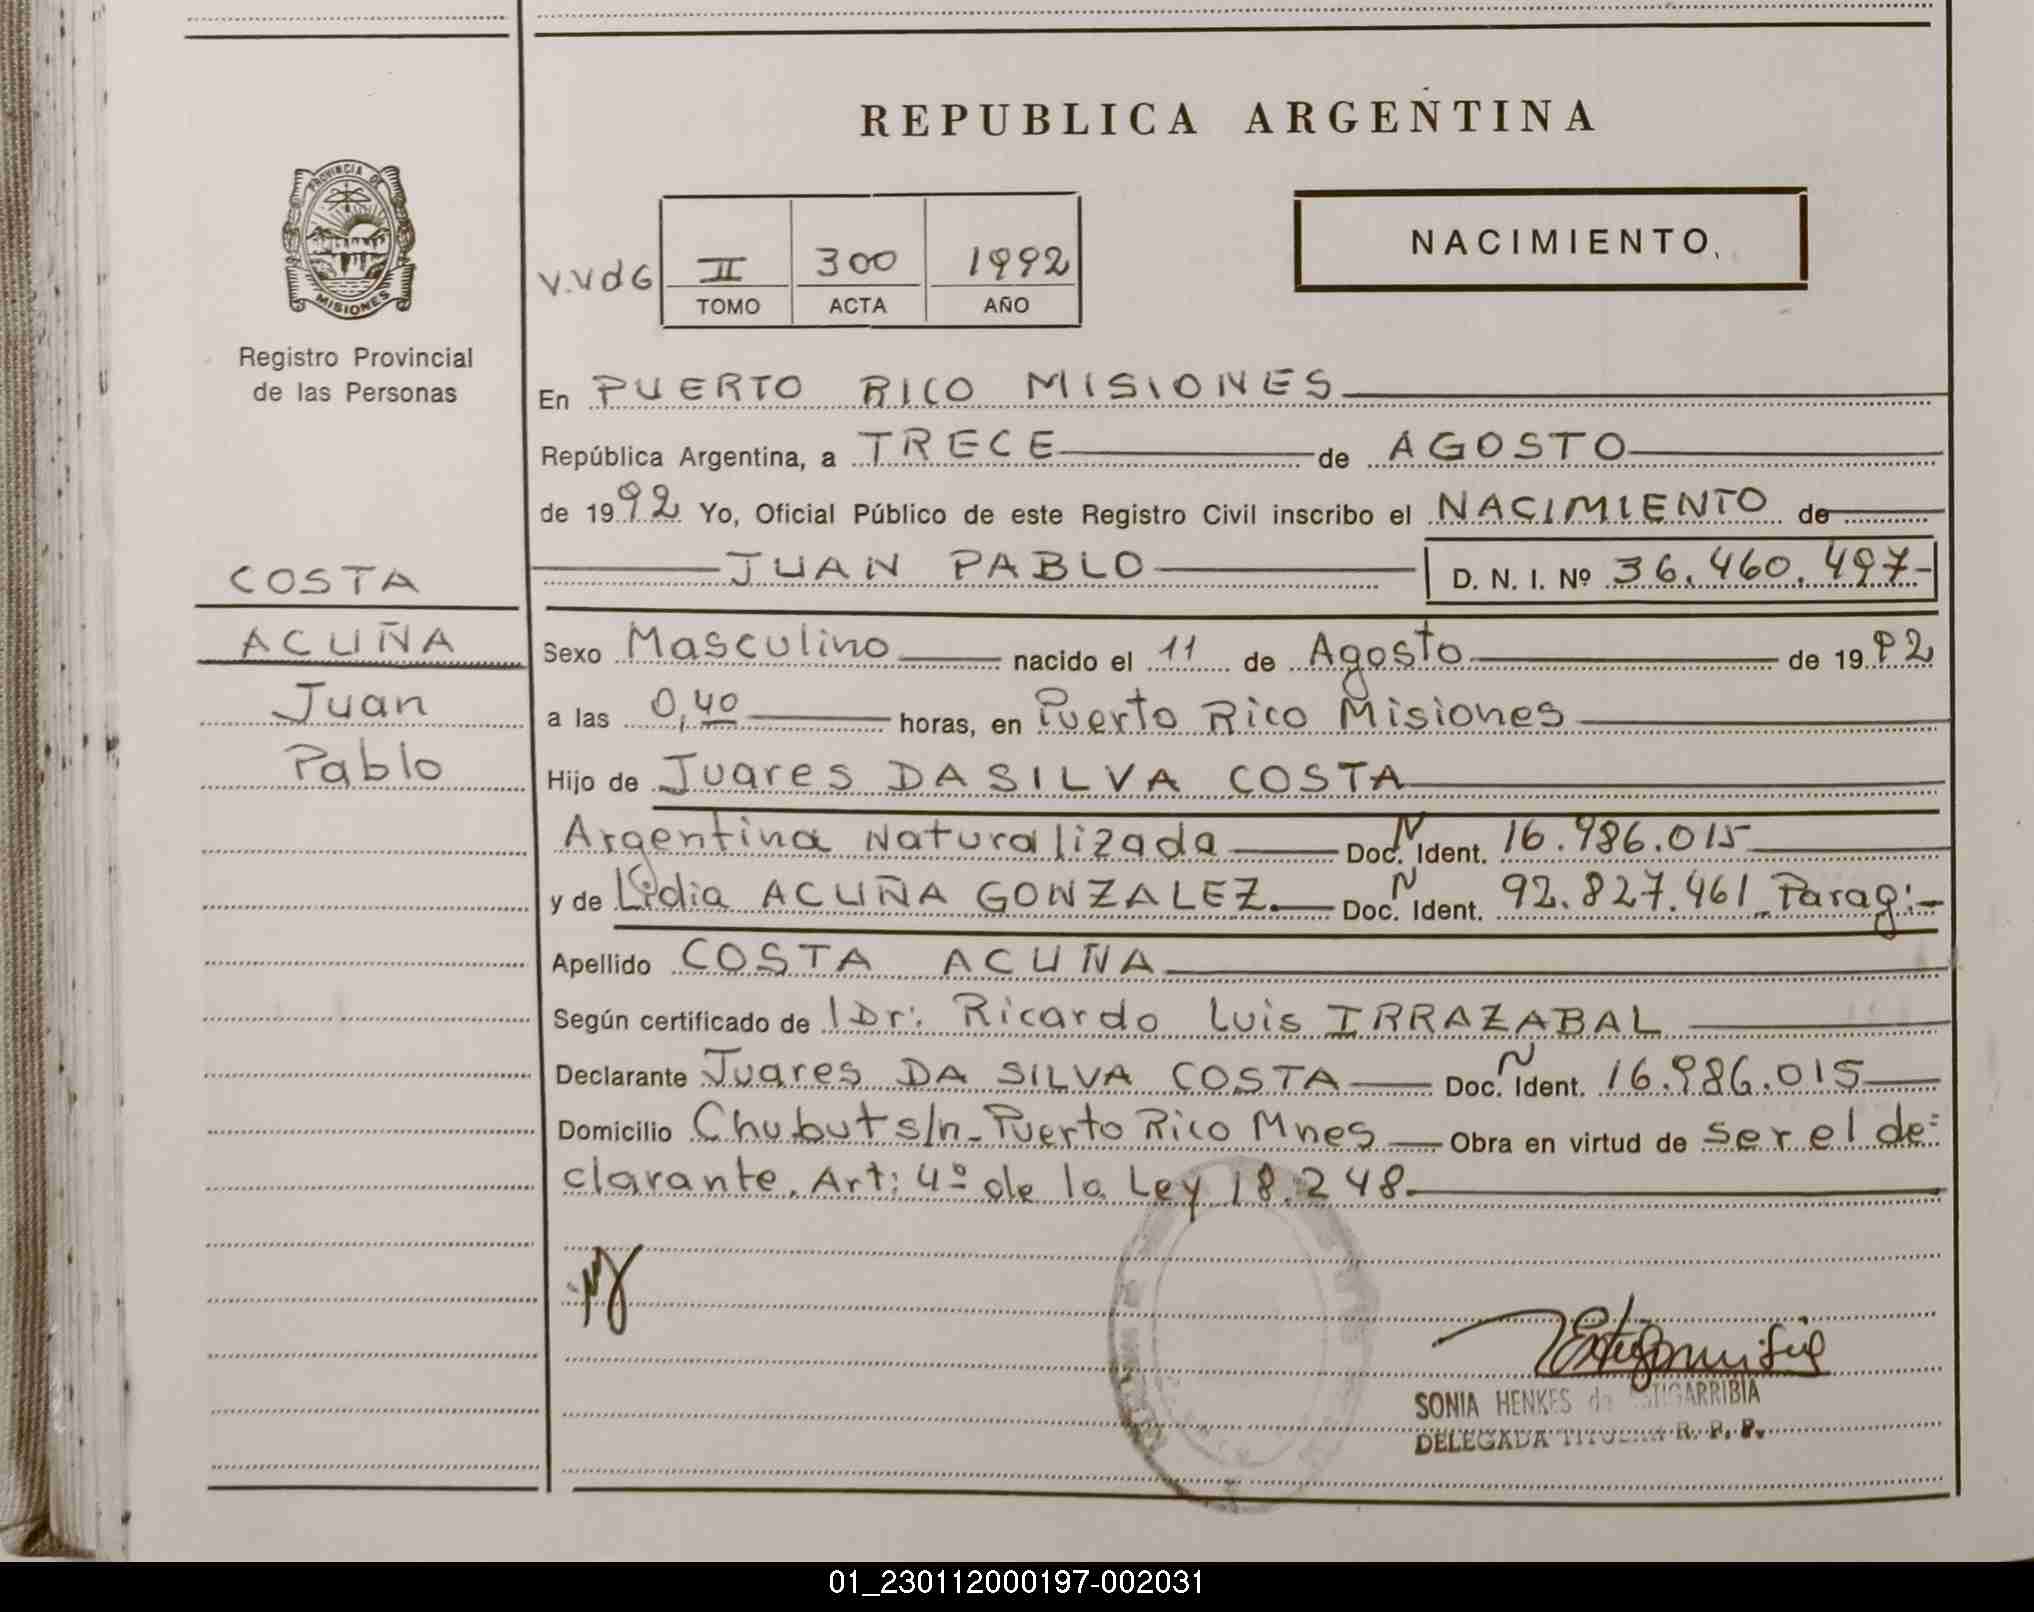 REPUBLICA ARGENTINA
PROVINCIA DE
MISIONES
Registro Provincial
de las Personas
NACIMIENTO
V.VdG II 300 1992
TOMO ACTA AÑO
En PUERTO RICO MISIONES
República Argentina, a TRECE de AGOSTO
de 1992 Yo, Oficial Público de este Registro Civil inscribo el NACIMIENTO de
JUAN PABLO D. N. I. Nº 36.460.497
COSTA
ACUÑA
Juan
Pablo
Sexo Masculino nacido el 11 de Agosto de 1992
a las 0,40 horas, en Puerto Rico Misiones
Hijo de Juares DA SILVA COSTA
Argentina Naturalizada Doc. N Ident. 16.986.015
y de Lidia ACUÑA GONZALEZ. Doc. N Ident. 92.827.461 Parag:
Apellido COSTA ACUÑA
Según certificado de 1 Dr: Ricardo Luis IRRAZABAL
Declarante Juares DA SILVA COSTA Doc. N Ident. 16.986.015
Domicilio Chubut s/n- Puerto Rico Mnes Obra en virtud de ser el de=
clarante. Art: 4º de la Ley 18.248
SONIA HENKES de ESTIGARRIBIA
DELEGADA TITULAR R. P. P.
01_230112000197-002031